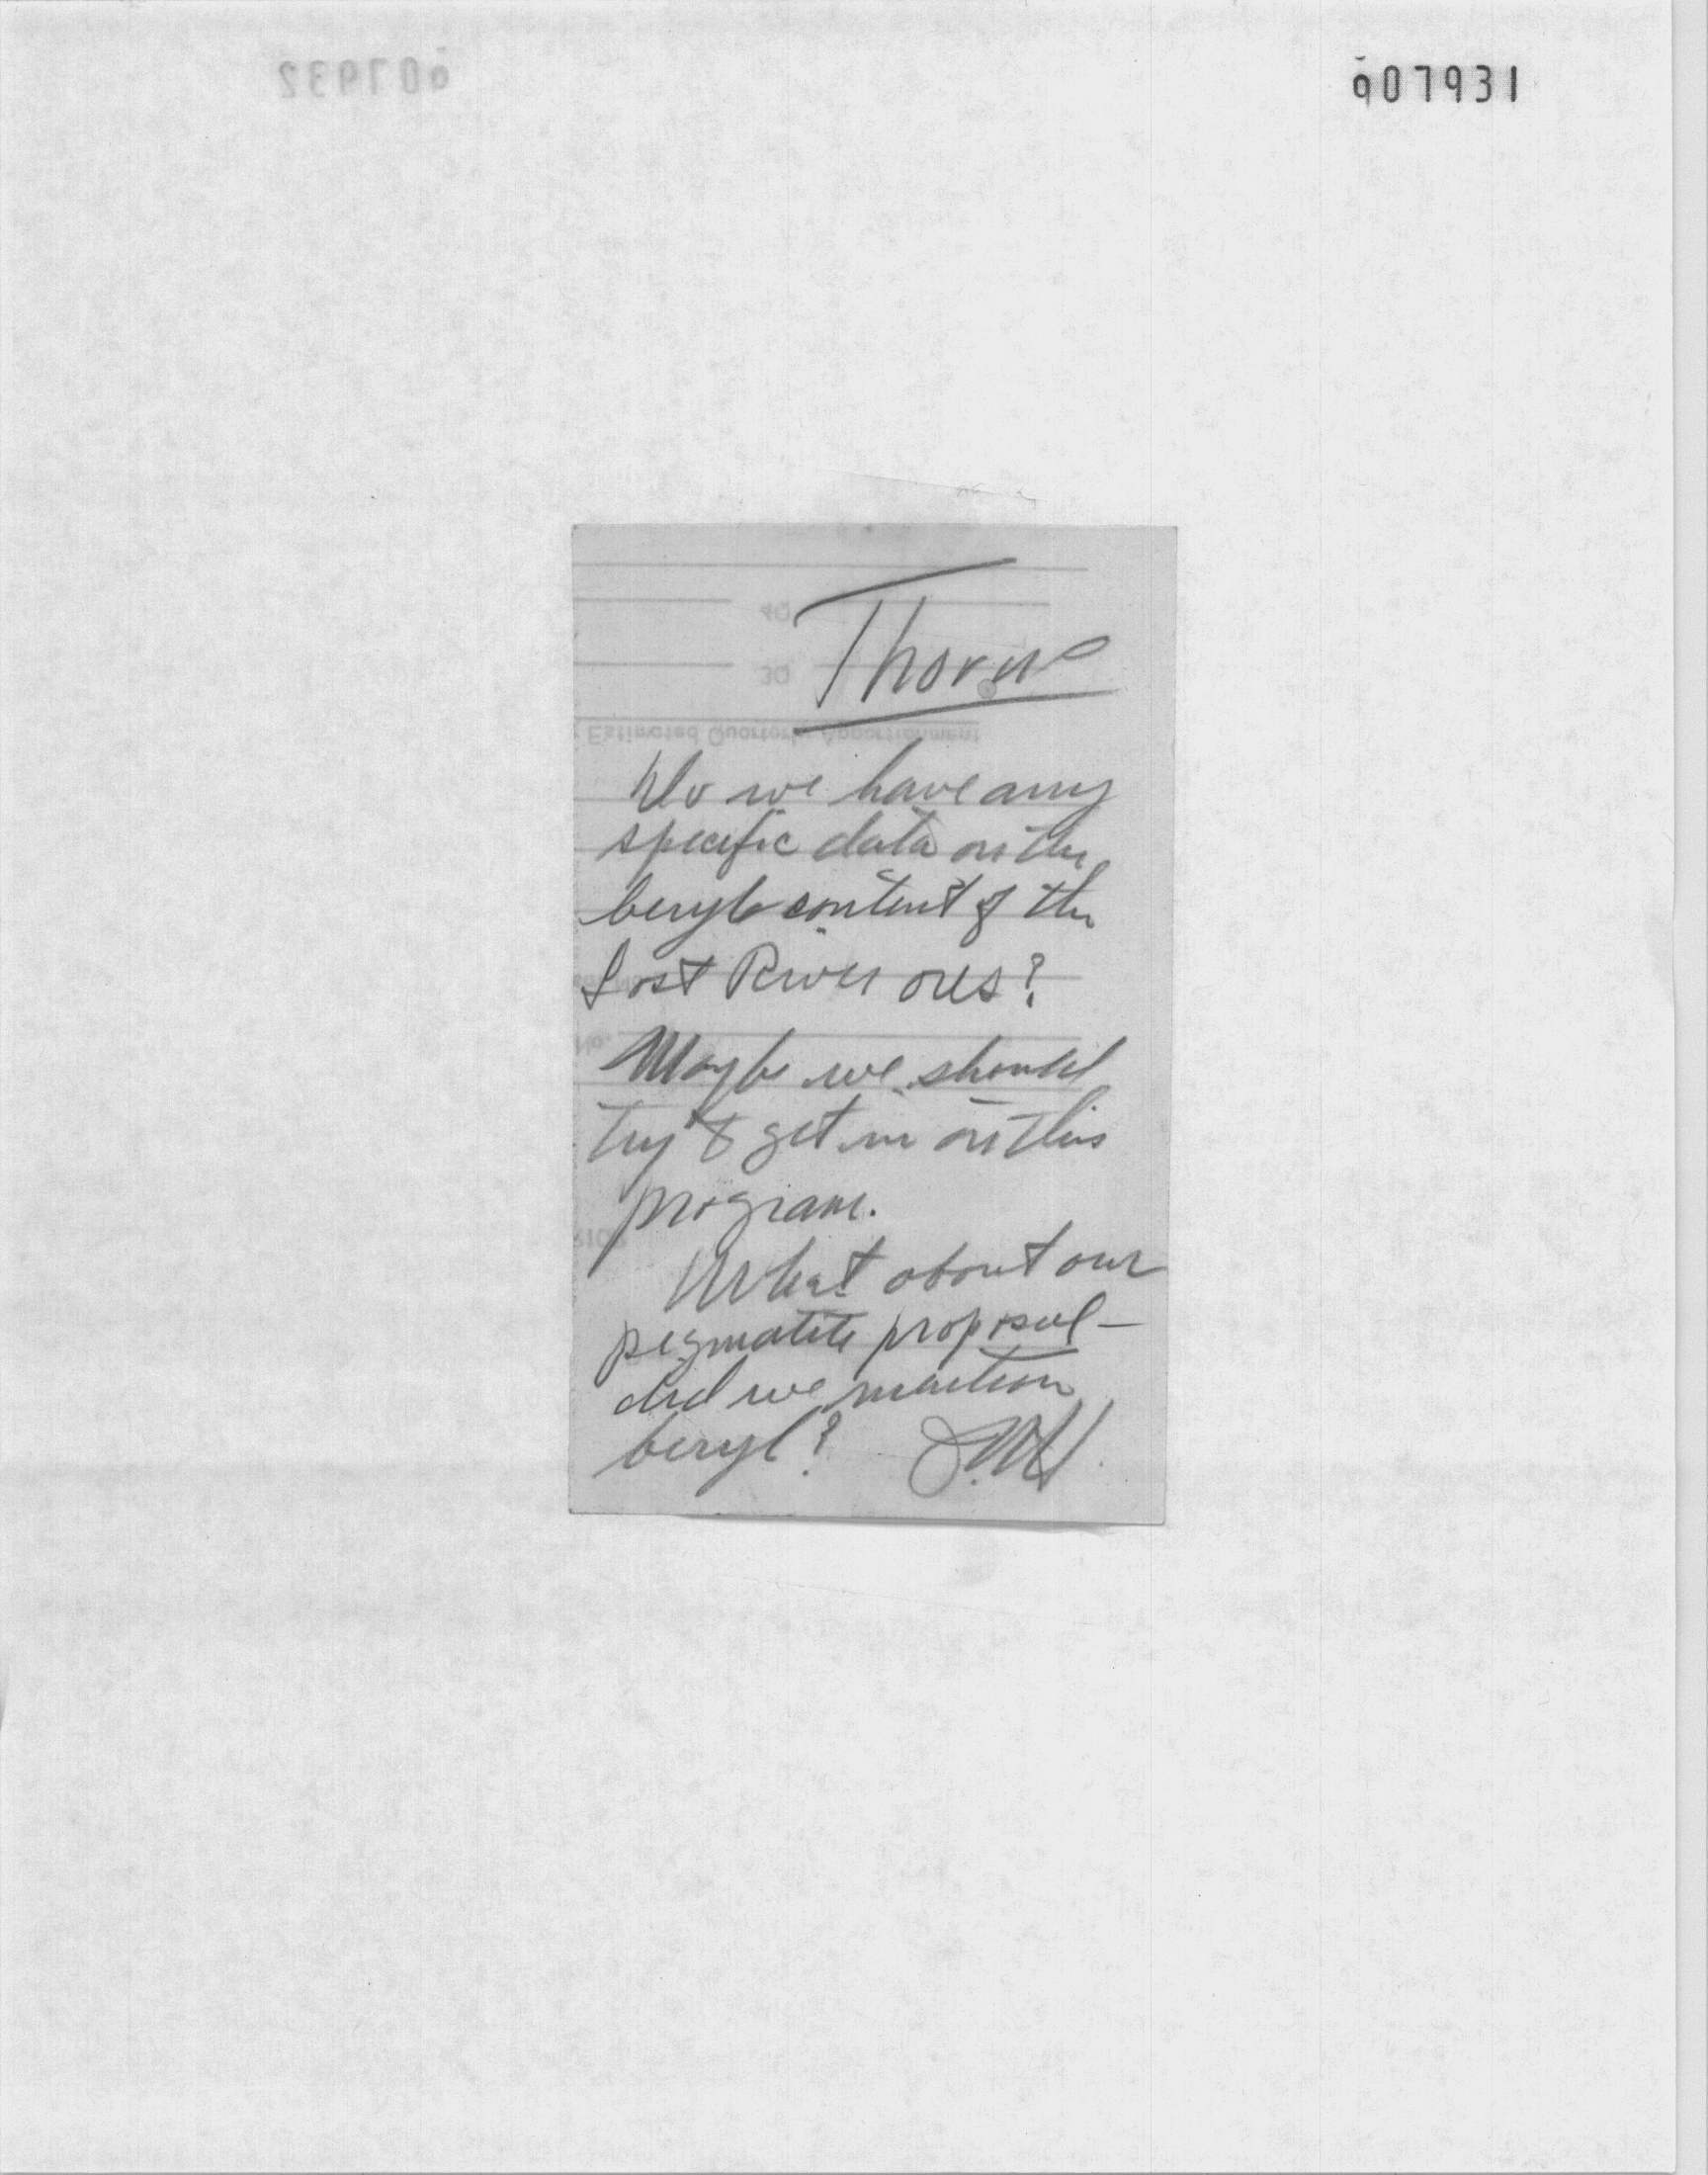 007931
Thorne
Do we have any
specific data on the
beryl content of the
Lost River ores?
Maybe we should
try to get in on this
program.
What about our
pegmatite proposal—
did we mention
beryl? J.M.H.